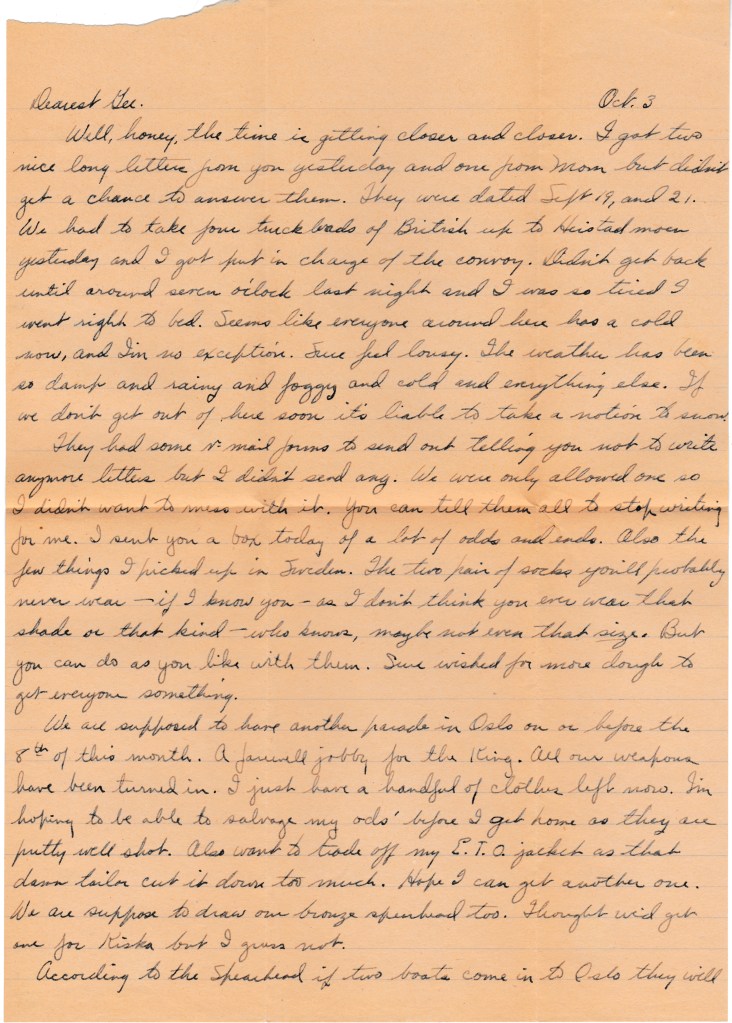 Dearest Gee. Oct. 3
Well, honey, the time is getting closer and closer. I got two
nice long letters from you yesterday and one from Mom but didn't
get a chance to answer them. They were dated Sept 19, and 21.
We had to take four truck loads of British up to Heistadmoen
yesterday and I got put in charge of the convoy. Didn't get back
until around seven o'clock last night and I was so tired I
went right to bed. Seems like everyone around here has a cold
now, and I'm no exception. Sure feel lousy. The weather has been
so damp and rainy and foggy and cold and everything else. If
we don't get out of here soon it's liable to take a notion to snow.
They had some v-mail forms to send out telling you not to write
anymore letters but I didn't send any. We were only allowed one so
I didn't want to mess with it. You can tell them all to stop writing
for me. I sent you a box today of a lot of odds and ends. Also the
few things I picked up in Sweden. The two pair of socks you'll probably
never wear – if I know you – as I don't think you ever wear that
shade or that kind – who knows, maybe not even that size. But
you can do as you like with them. Sure wished for more dough to
get everyone something.
We are supposed to have another parade in Oslo on or before the
8th of this month. A farewell jobby for the King. All our weapons
have been turned in. I just have a handful of clothes left now. I'm
hoping to be able to salvage my ods' before I get home as they are
pretty well shot. Also want to trade off my E.T.O. jacket as that
damn tailor cut it down too much. Hope I can get another one.
We are suppose to draw our bronze spearhead too. Thought we'd get
one for Kiska but I guess not.
According to the Spearhead if two boats come in to Oslo they will